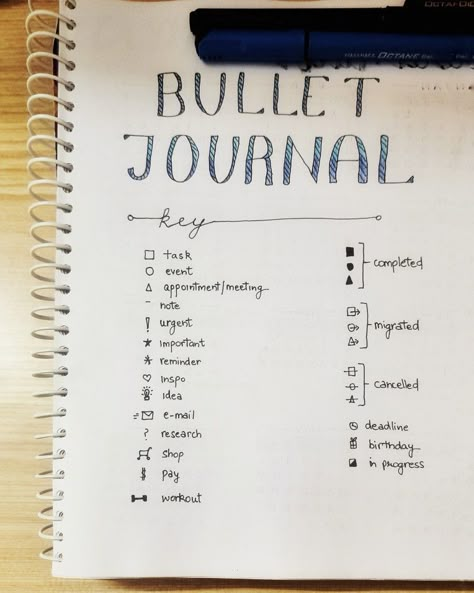 OCTANE
BULLET
JOURNAL
key
task
event
appointment/meeting
note
urgent
important
reminder
inspo
idea
e-mail
? research
shop
$ pay
workout
completed
migrated
cancelled
deadline
birthday
in progress